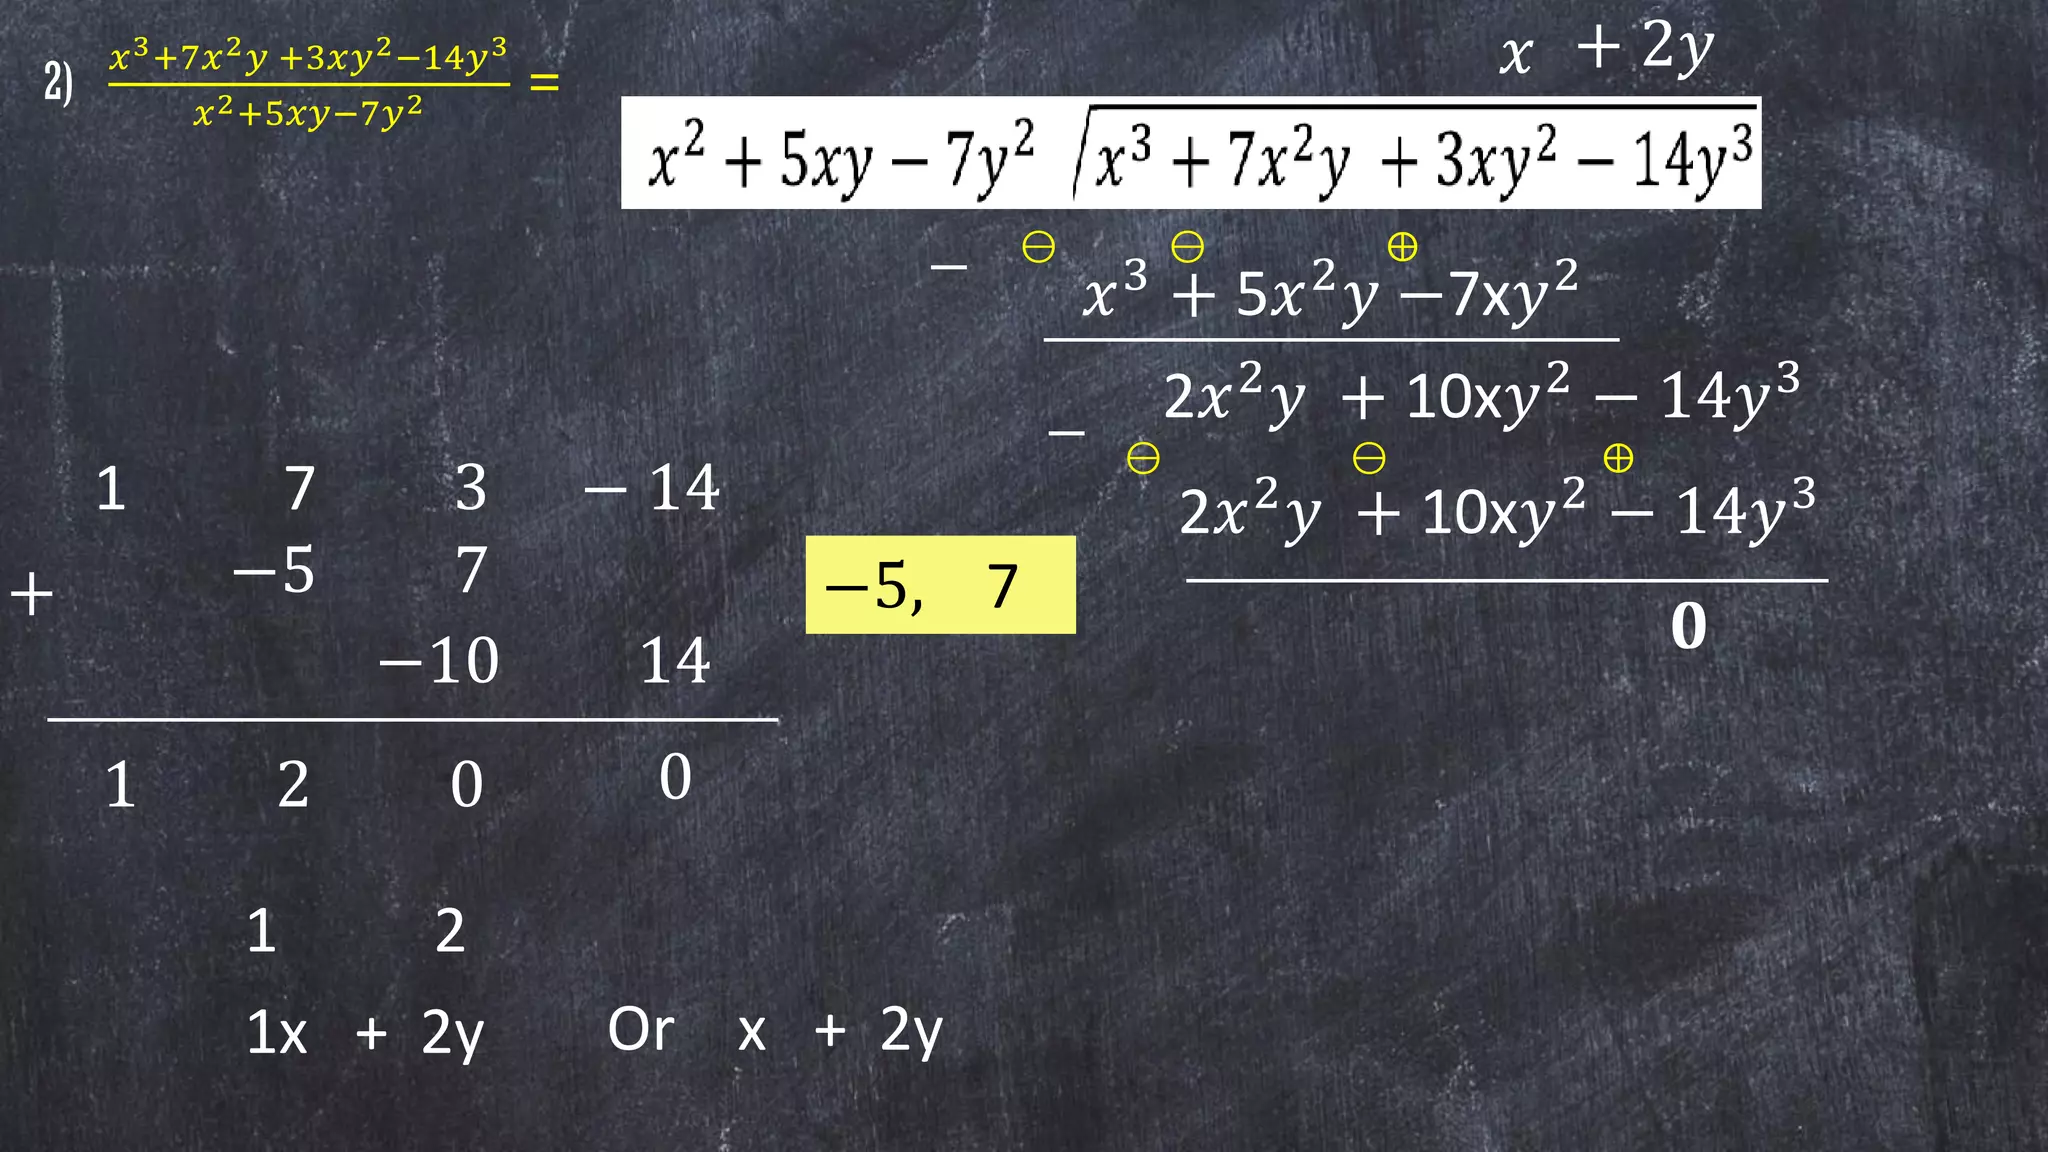 2) x³+7x²y +3xy²−14y³ / x²+5xy−7y² =
x + 2y
x² + 5xy − 7y² √x³ + 7x²y + 3xy² − 14y³
− ⊖ ⊖ ⊕
x³ + 5x²y −7xy²
2x²y + 10xy² − 14y³
− ⊖ ⊖ ⊕
2x²y + 10xy² − 14y³
0
1 7 3 − 14
−5 7
+
−10 14
−5, 7
1 2 0 0
1 2
1x + 2y Or x + 2y